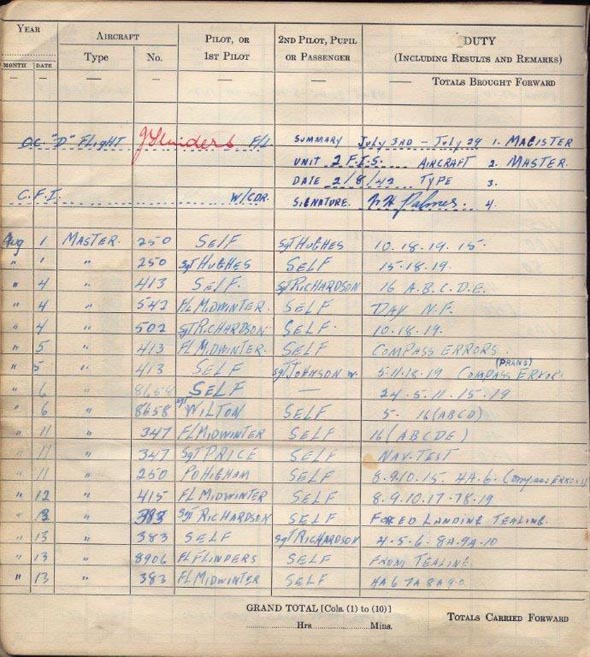 YEAR AIRCRAFT PILOT, OR 2ND PILOT, PUPIL DUTY
MONTH DATE Type No. 1ST PILOT OR PASSENGER (INCLUDING RESULTS AND REMARKS)
— — — — — — — TOTALS BROUGHT FORWARD
O.C. "D" Flight J Flinders F/L SUMMARY July 3RD - July 29 1. MAGISTER
UNIT 2 F.I.S. AIRCRAFT 2. MASTER.
DATE 2/8/42 TYPE 3.
C.F.I. W/CDR. SIGNATURE. Palmer. 4.
Aug 1 MASTER. 250 SELF Sgt HUGHES 10.18.19.15.
" 1 " 250 Sgt HUGHES SELF 15.18.19.
" 4 " 413 SELF. Sgt RICHARDSON 16 A.B.C.D.E.
" 4 " 542 FL MIDWINTER. SELF DAY N.F.
" 4 " 502 Sgt RICHARDSON SELF. 10.18.19.
" 5 " 413 FL MIDWINTER. SELF COMPASS ERRORS.
" 5 " 413 SELF Sgt JOHNSON W. 5.11.18.19 COMPASS ERROR. (PRANG)
" 6 " SELF 24.5.11.15.19
" 6 " 8658 Sgt WILTON SELF 5. 16(ABCD)
" 11 " 347 FL MIDWINTER SELF 16(ABCDE)
" 11 " 347 Sgt PRICE SELF NAV. TEST
" 11 " 250 PO HIGHAM SELF 8.9.10.15. 4A.6. (Compass ERRORS)
" 12 " 415 FL MIDWINTER SELF 8.9.10.17.18.19
" 13 " 383 Sgt RICHARDSON SELF FORCED LANDING TEALING.
" 13 " 383 SELF Sgt RICHARDSON 4.5.6.8A.9A.10
" 13 " 8906 FL FLINDERS SELF FROM TEALING.
" 13 " 383 FL MIDWINTER SELF 4A 6 7A 8A 9
GRAND TOTAL [Cols. (1) to (10)] TOTALS CARRIED FORWARD
Hrs. Mins.